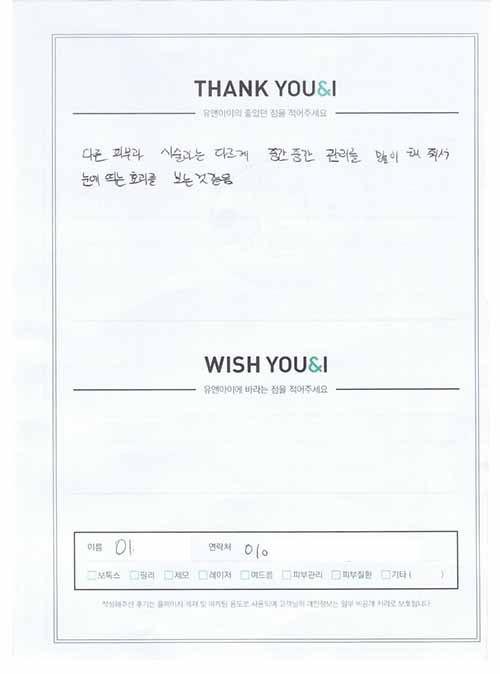 THANK YOU&I
유앤아이의 좋았던 점을 적어주세요
다른 피부과 시술과는 다르게 중간중간 관리를 많이 해 줘서
눈에 띄는 효과를 보는것같음
WISH YOU&I
유앤아이에 바라는 점을 적어주세요
이름 이 연락처 010
보톡스 필러 제모 레이저 여드름 피부관리 피부질환 기타 ( )
작성해주신 후기는 홈페이지 게재 및 마케팅 용도로 사용되며 고객님의 개인정보는 일부 비공개 처리로 보호됩니다.